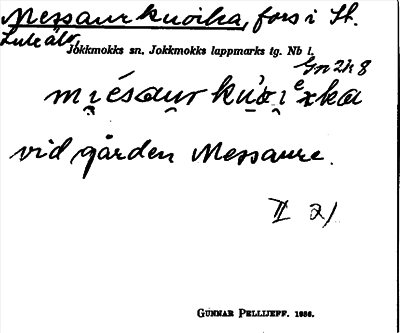 Messaurkuoika, fors i St.
Lule älv.
Jokkmokks sn, Jokkmokks lappmarks tg. Nb l.
Gn 2h 8
vid gården Messaure.
II 2)
GUNNAR PELLIJEFF. 1956.